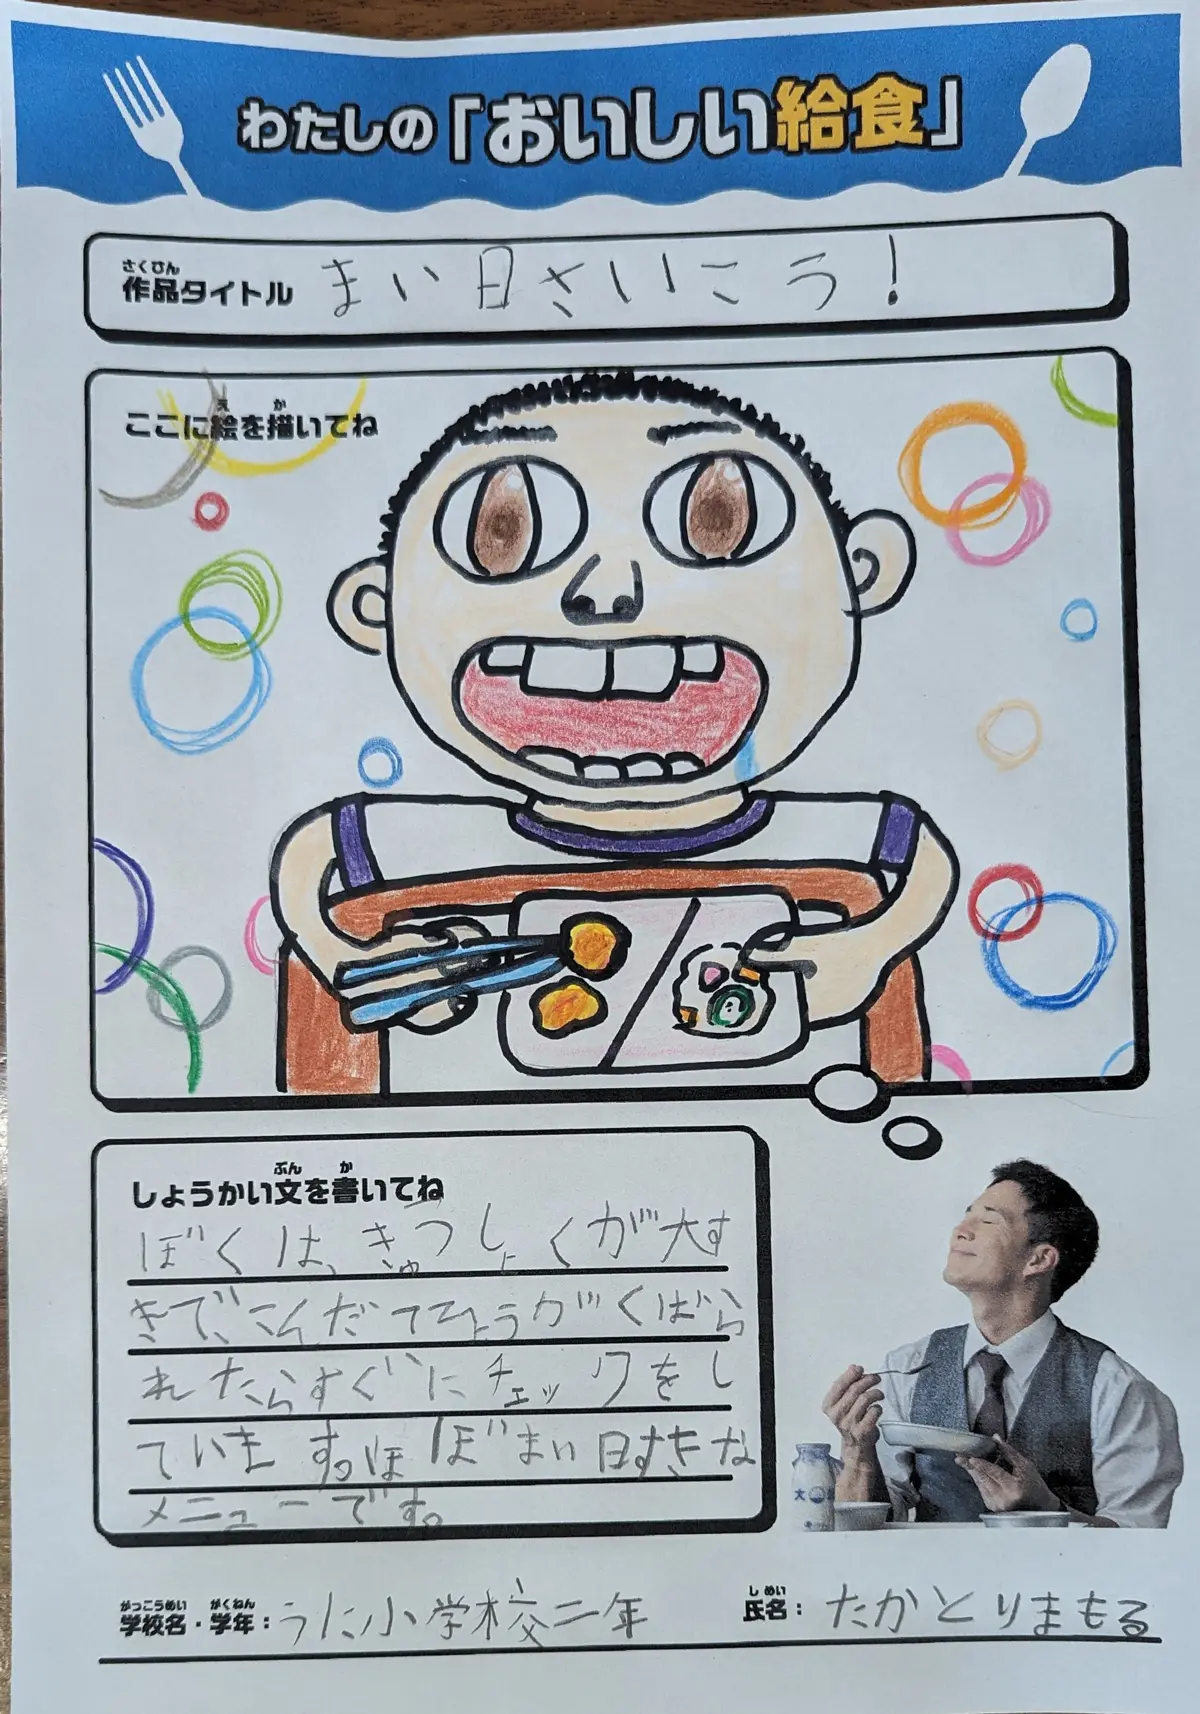 わたしの「おいしい給食」
さくひん
作品タイトル まい日さいこう!
え か
ここに絵を描いてね
ぶん か
しょうかい文を書いてね
ぼくは、きゅうしょくが大す
きで、こんだてひょうがくばら
れたらすぐにチェックをし
ています。ほぼまい日すきな
メニューです。
がっこうめい がくねん しめい
学校名・学年:うに小学校二年 氏名:たかとりまもる
大